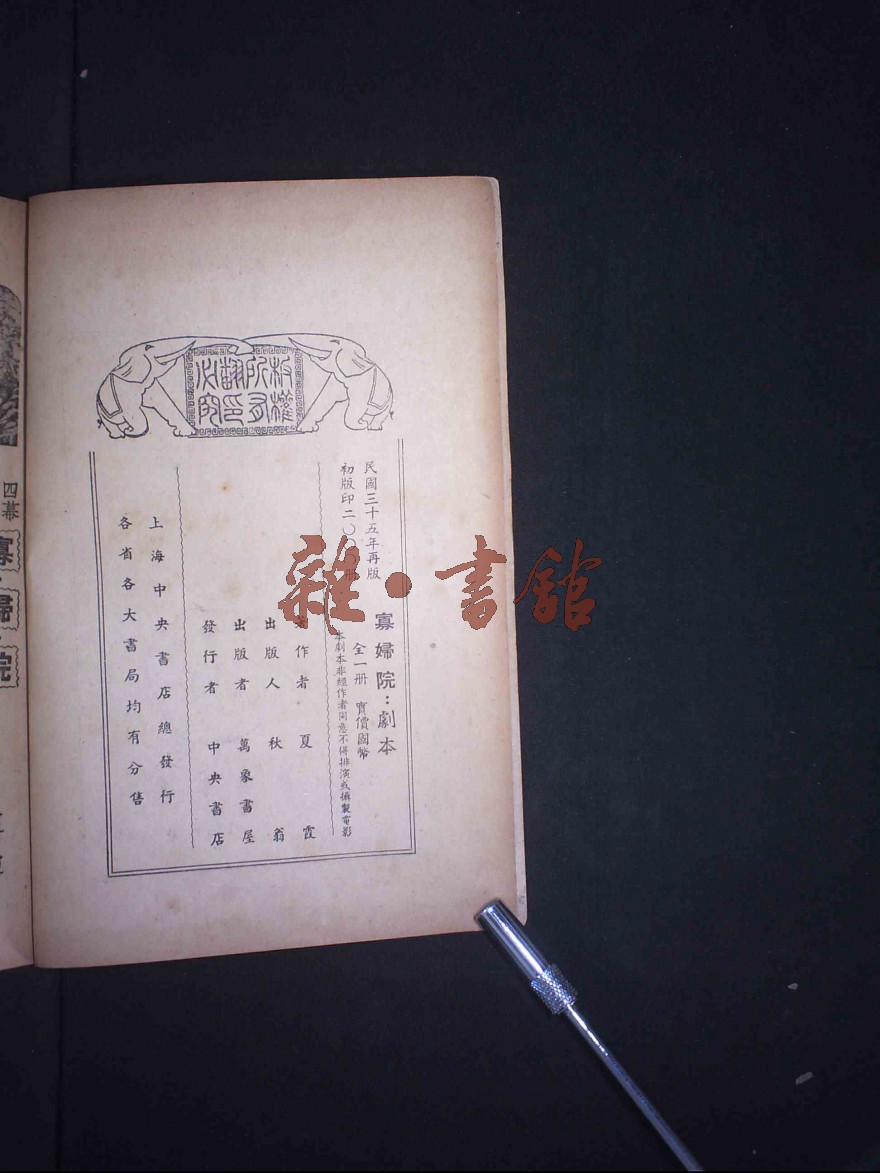 版權
所有
翻印
必究
民國三十五年再版
初版印二〇〇〇冊
寡婦院：劇本
全一册 實價國幣
本劇本非經作者同意不得排演或攝製電影
著作者 夏霞
出版人 秋翁
出版者 萬象書屋
發行者 中央書店
上海中央書店總發行
各省各大書局均有分售
四幕
寡婦院
雜·書館